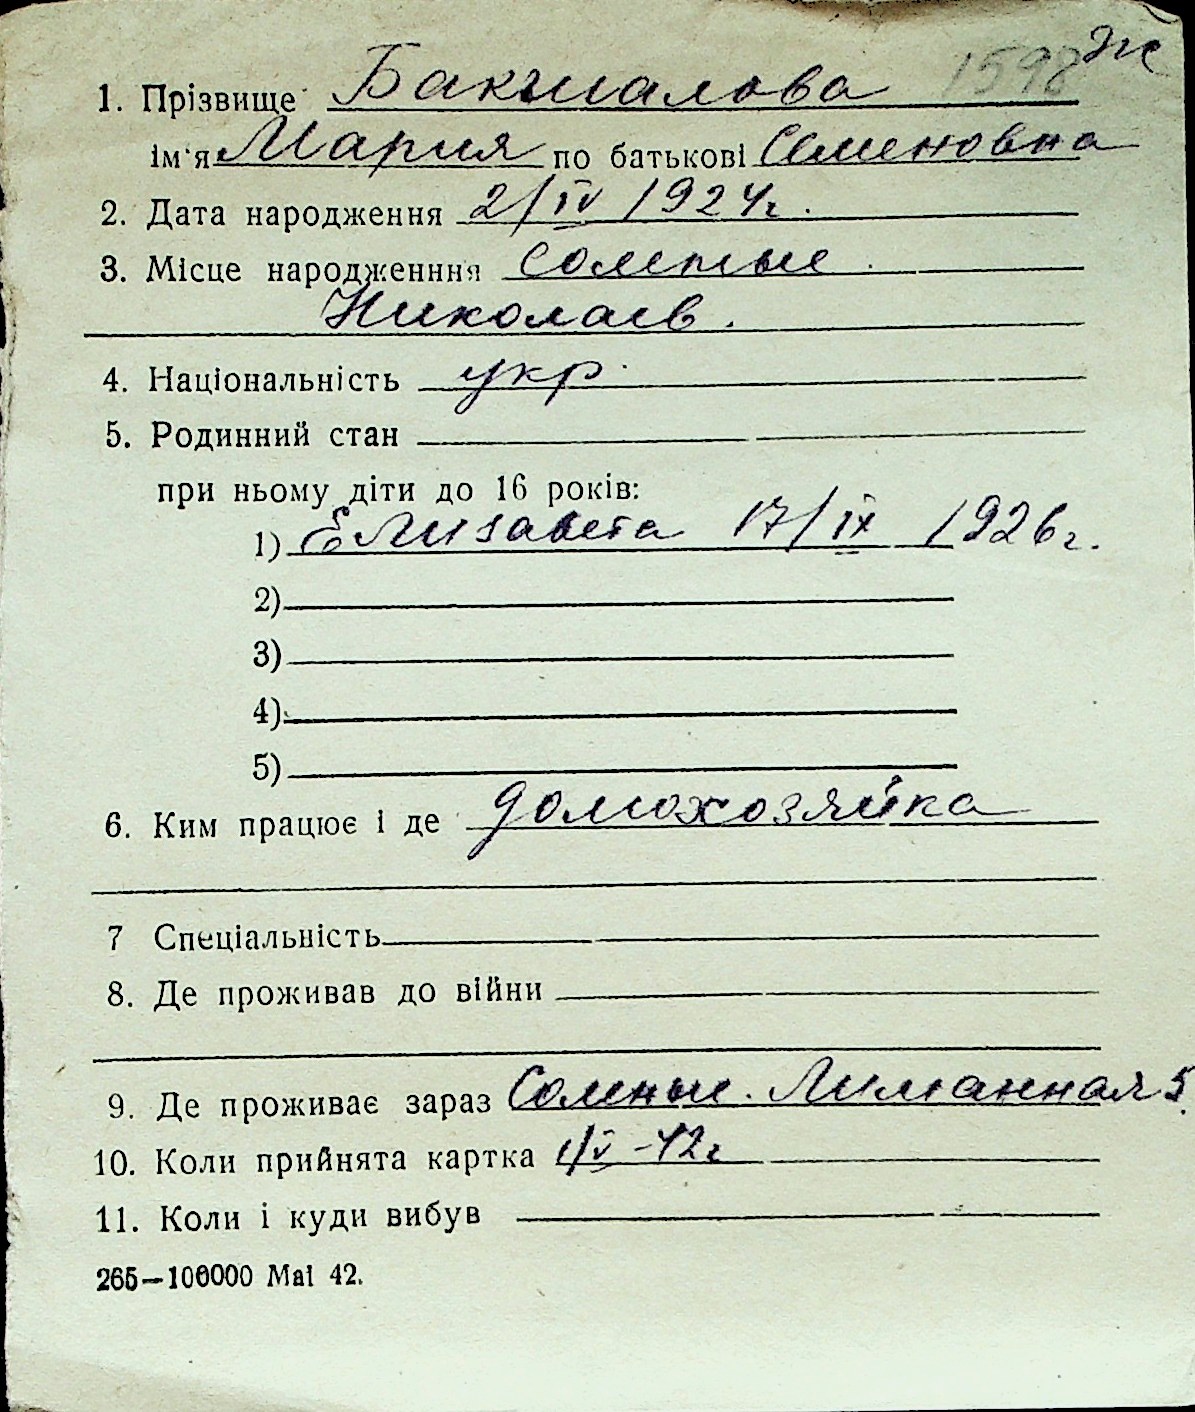 1598 Ж
1. Прізвище Бакшалова
ім'я Мария по батькові Семеновна
2. Дата народження 2/IV 1924г.
3. Місце народженння Солёные
Николаев.
4. Національність укр.
5. Родинний стан
при ньому діти до 16 років:
1) Елизавета 17/IX 1926г.
2)
3)
4)
5)
6. Ким працює і де домохозяйка
7 Спеціальність
8. Де проживав до війни
9. Де проживає зараз Солные. Лиманная 5.
10. Коли прийнята картка 1/V-42г
11. Коли і куди вибув
265—100000 Mai 42.